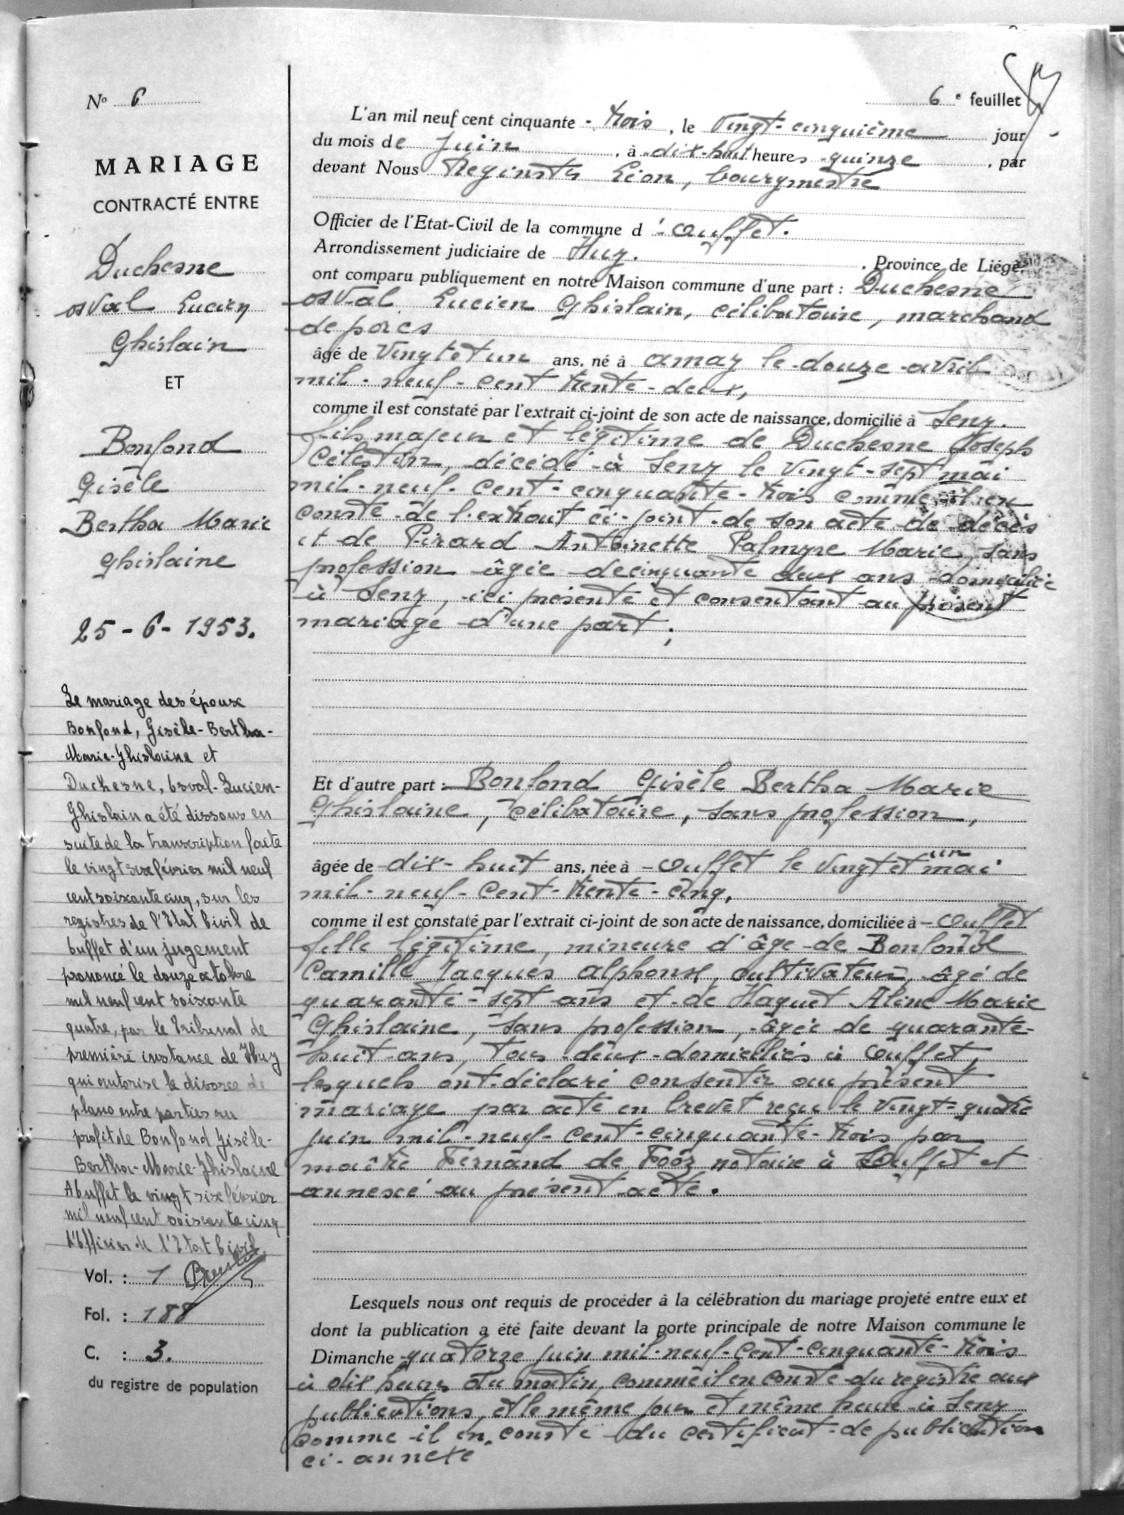 N° 6
MARIAGE
CONTRACTÉ ENTRE
Duchesne
osval Lucien
Ghislain
ET
Bonfond
Gisèle
Bertha Marie
Ghislaine
25-6-1953.
Le mariage des époux
Bonfond, Gisèle-Bertha-
Marie-Ghislaine et
Duchesne, Osval-Lucien-
Ghislain a été dissous en
suite de la transcription faite
le vingt six février mil neuf
cent soixante cinq, sur les
registres de l'Etat Civil de
Ouffet d'un jugement
prononcé le douze octobre
mil neuf cent soixante
quatre, par le Tribunal de
première instance de Huy
qui autorise le divorce de
plano entre parties au
profit de Bonfond Gisèle-
Bertha-Marie-Ghislaine
A Ouffet le vingt six février
mil neuf cent soixante cinq
L'Officier de l'Etat Civil,
Vol. : 1
Fol. : 188
C. : 3.
du registre de population
6e feuillet
L'an mil neuf cent cinquante - trois, le vingt-cinquième jour
du mois de juin, à dix-huit heures quinze, par
devant Nous Reginster Léon, bourgmestre
Officier de l'Etat-Civil de la commune d'Ouffet.
Arrondissement judiciaire de Huy. . Province de Liége
ont comparu publiquement en notre Maison commune d'une part : Duchesne
osval Lucien Ghislain, célibataire, marchand
de porcs
âgé de vingt et un ans, né à Amay le douze avril
mil-neuf-cent trente-deux,
comme il est constaté par l'extrait ci-joint de son acte de naissance, domicilié à Seny.
fils majeur et légitime de Duchesne Joseph
Célestin, décédé à Seny le vingt-sept mai
mil-neuf-cent-cinquante-trois comme il en
conste de l'extrait ci-joint de son acte de décès
et de Pirard Antoinette Palmyre Marie, sans
profession âgée de cinquante deux ans domiciliée
à Seny, ici présente et consentant au présent
mariage d'une part ;
Et d'autre part : Bonfond Gisèle Bertha Marie
Ghislaine, célibataire, sans profession,
âgée de dix-huit ans, née à Ouffet le vingt et un mai
mil-neuf-cent-trente-cinq.
comme il est constaté par l'extrait ci-joint de son acte de naissance, domiciliée à Ouffet
fille légitime, mineure d'âge de Bonfond
Camille Jacques Alphonse, cultivateur, âgé de
quarante-sept ans et de Haquet Aline Marie
Ghislaine, sans profession, âgée de quarante-
huit ans, tous deux domiciliés à Ouffet,
lesquels ont déclaré consentir au présent
mariage par acte en brevet reçu le vingt-quatre
juin mil-neuf-cent-cinquante-trois par
maître Fernand de Fooz notaire à Ouffet et
annexé au présent acte.
Lesquels nous ont requis de procéder à la célébration du mariage projeté entre eux et
dont la publication a été faite devant la porte principale de notre Maison commune le
Dimanche quatorze juin mil-neuf-cent-cinquante-trois
à dix heures du matin, comme il en conste du registre aux
publications, et le même jour et même heure à Seny
comme il en conste du certificat de publication
ci-annexé